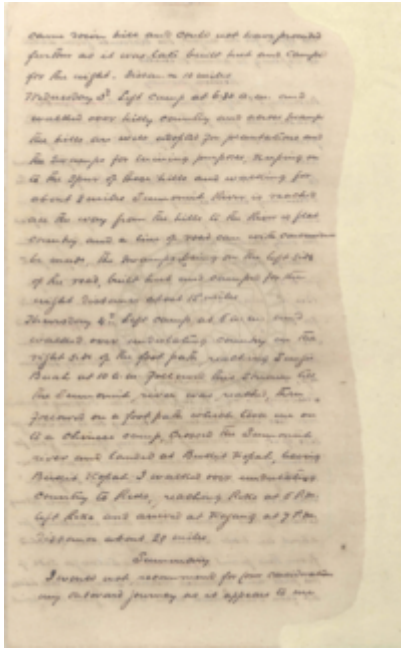 came down hills and could not have proceeded
further as it was late built hut and camped
for the night. Distance 11 miles
Wednesday 3rd Left camp at 6.30 a.m. and
walked over hilly country and across swamp
the hills are well adapted for plantations and
the swamps for mining purposes, Keeping on
to the Spur of these hills and walking for
about 2 miles River is reached
all the way from the hills to the River is flat
country and a line of road can with convenience
be made, the swamps being on the left side
of the road, built hut and camped for the
night Distance about 12 miles
Thursday 4th Left camp at 6 a.m. and
walked over undulating country on the
right side of the foot path, reaching
at 10 a.m. followed this till
the river was reached, then
followed on a foot path which took me on
to a Chinese camp, Crossed the
river and landed at Bukit Kopah, leaving
Bukit Kopah I walked over undulating
Country to reaching at 5 P.m.
left and arrived at at 7 P.m.
Distance about 20 miles.
Summary
I would not recommend for your consideration
my outward journey as it appears to me